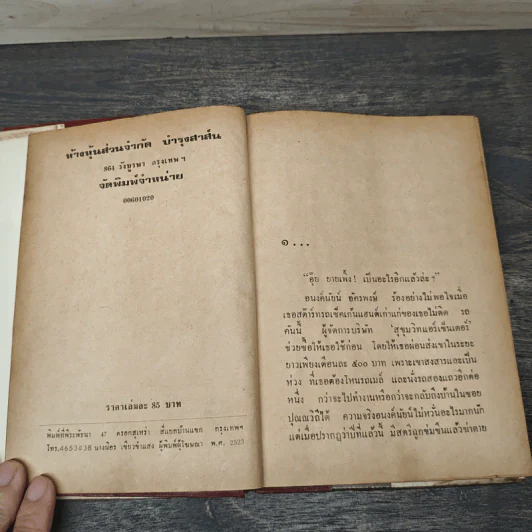 ห้างหุ้นส่วนจำกัด บำรุงสาส์น
861 วังบูรพา กรุงเทพ ฯ
จัดพิมพ์จำหน่าย
00601020
ราคาเล่มละ 85 บาท
พิมพ์ที่พิระพัธนา 47 ตรอกสุเหร่า สี่แยกบ้านแขก กรุงเทพฯ
โทร.4653438 นางน้อง เขียวขำแสง ผู้พิมพ์ผู้โฆษณา พ.ศ. 2523
๑...
“อุ๊ย ยายเพ็ง! เป็นอะไรอีกแล้วล่ะ”
อนงค์นัยน์ อัครพงษ์ ร้องอย่างไม่พอใจเมื่อ
เธอสต๊าร์ทรถเช็คเก้นแฮนด์เก่าแก่ของเธอไม่ติด รถ
คันนี้ ผู้จัดการบริษัท ‘สุขุมวิทแอร์เซ็นเตอร์’
ช่วยซื้อให้เธอใช้ก่อน โดยให้เธอผ่อนส่งเขาในระยะ
ยาวเพียงเดือนละ ๕๐๐ บาท เพราะเขาสงสารและเป็น
ห่วง ที่เธอต้องโหนรถเมล์ และนั่งรถสองแถวอีกต่อ
หนึ่ง กว่าจะไปทำงานหรือกว่าจะกลับถึงบ้านในซอย
ปุณณวิถีได้ ความจริงอนงค์นัยน์ไม่หวั่นอะไรมากนัก
แต่เมื่อปรากฏว่าปีที่แล้วนี้ มีสตรีถูกข่มขืนแล้วฆ่าตาย